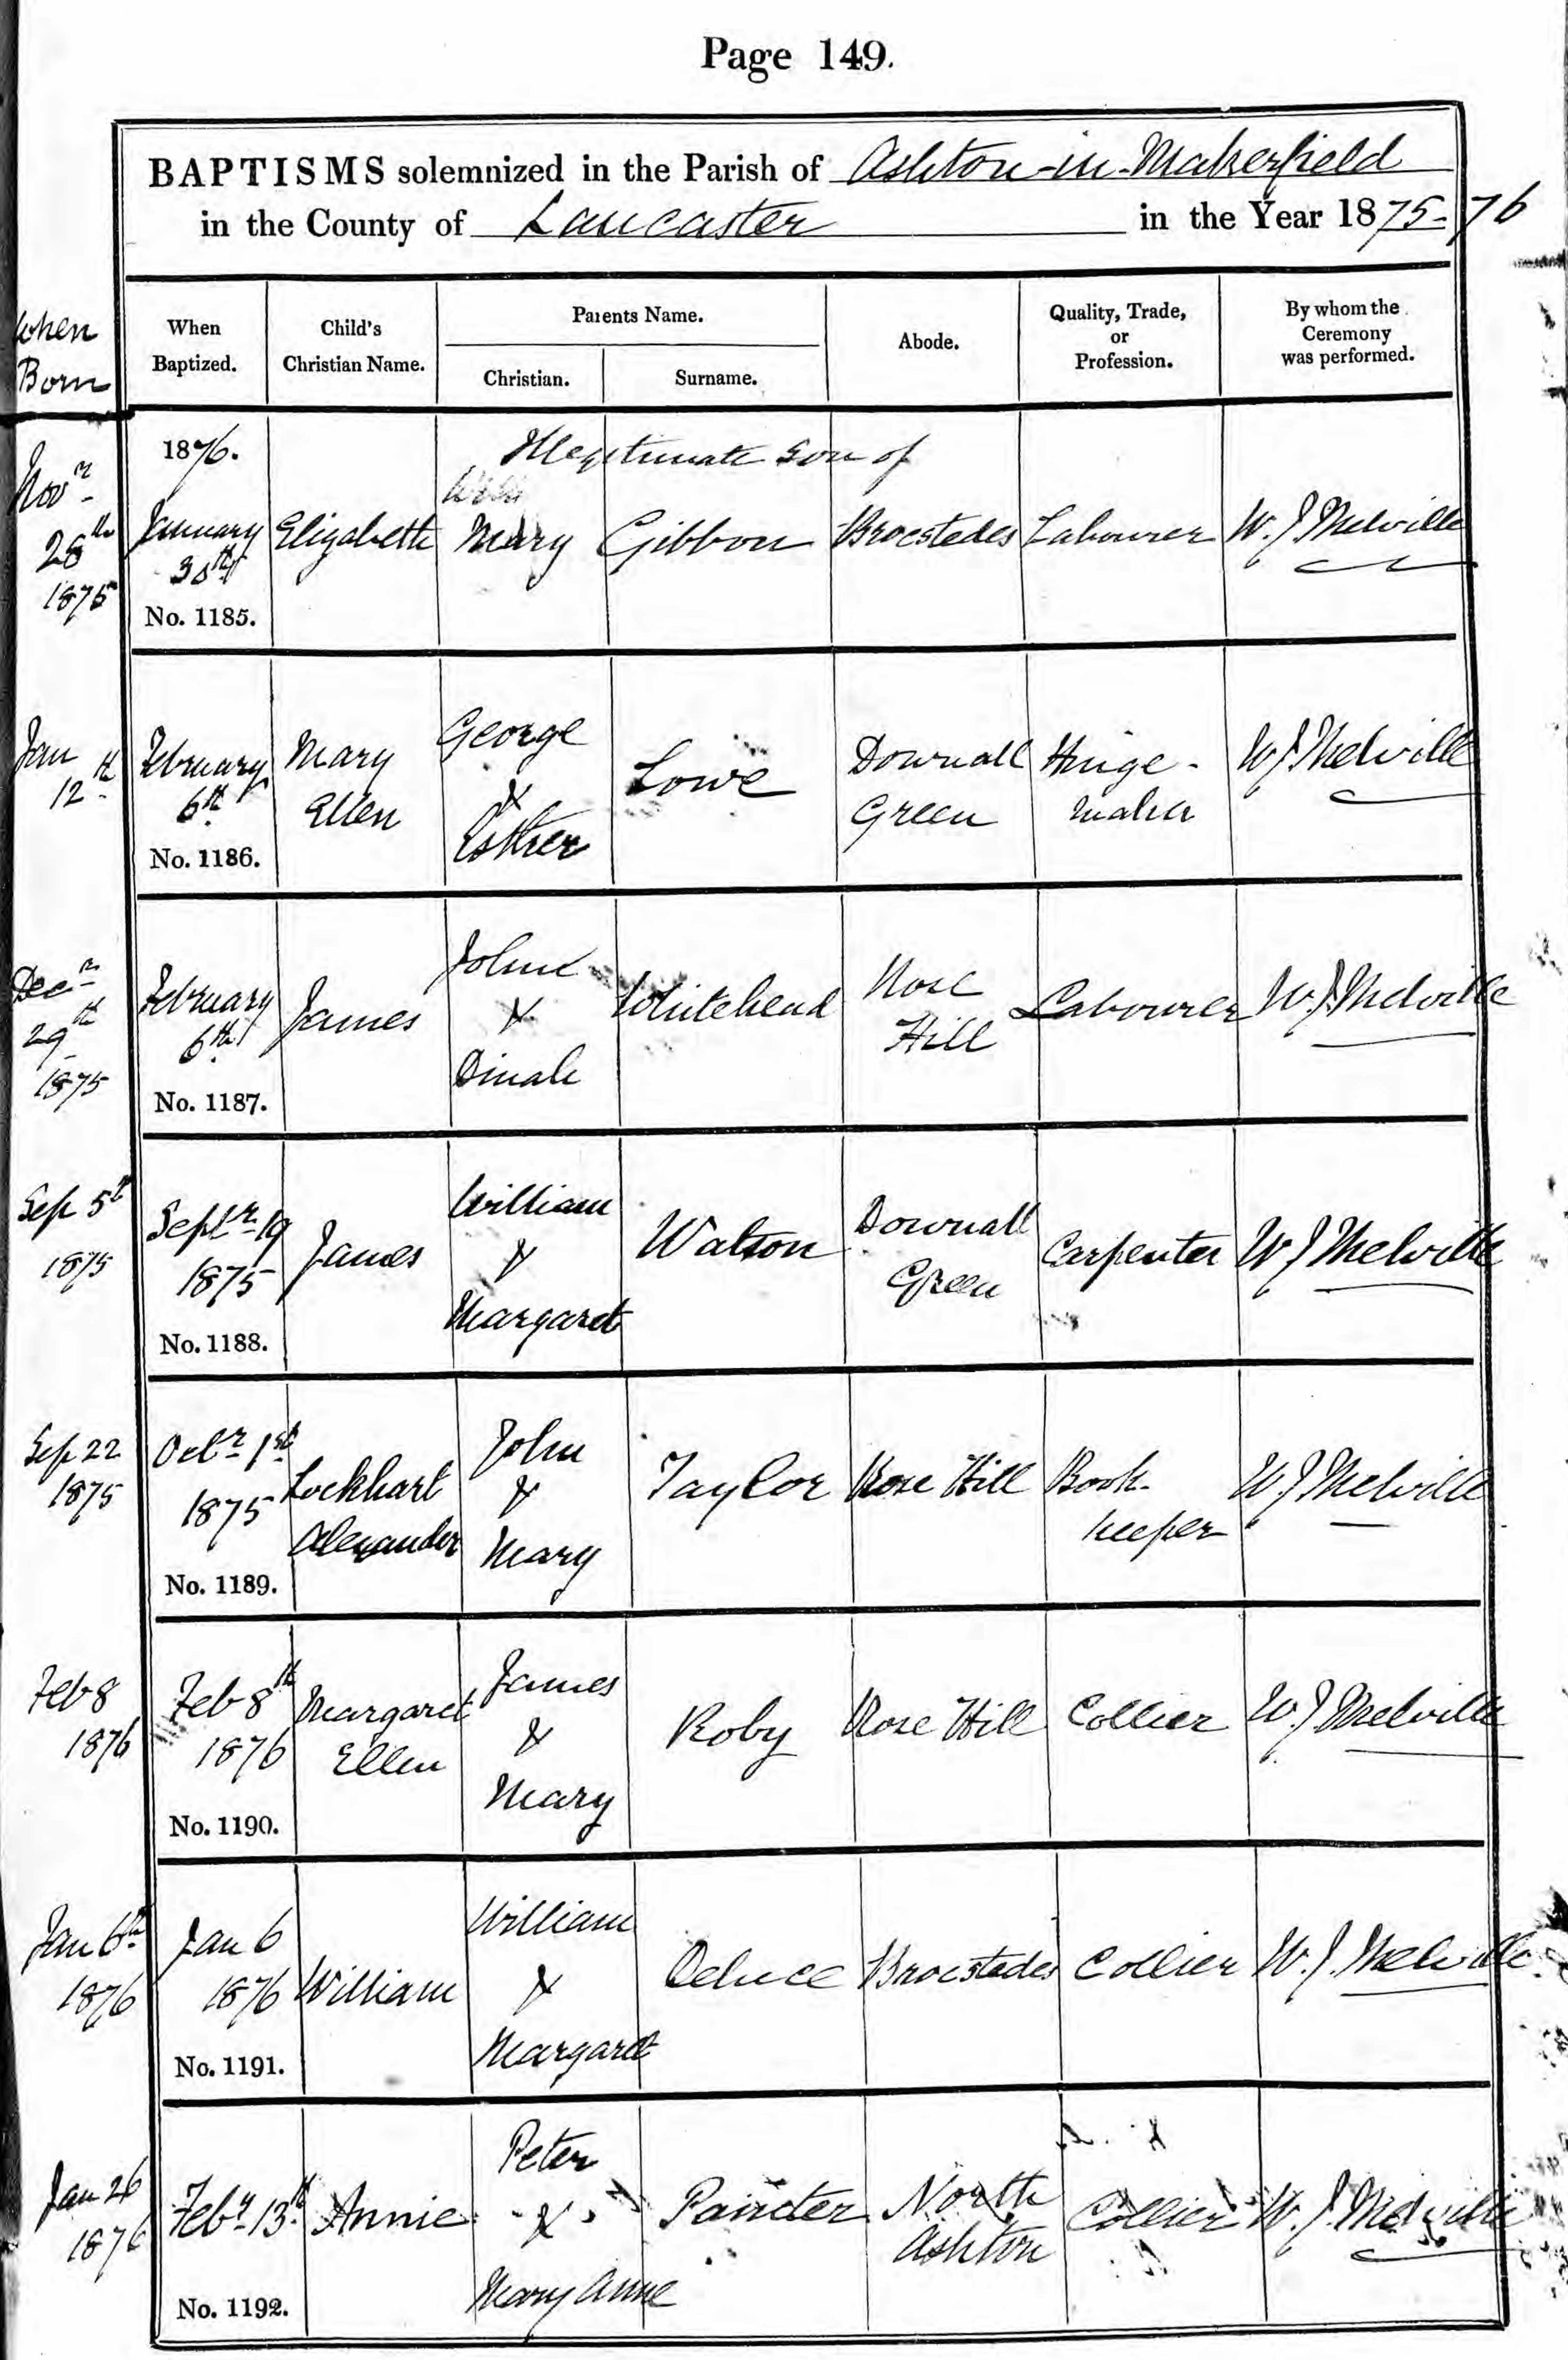 Page 149.
BAPTISMS solemnized in the Parish of Ashton-in-Makerfield
in the County of Lancaster in the Year 1875-76
When Born
When Baptized.
Child's Christian Name.
Parents Name.
Christian.
Surname.
Abode.
Quality, Trade, or Profession.
By whom the Ceremony was performed.
Novr 28th 1875
1876. January 30th
No. 1185.
Elizabeth
Illegitimate Son of
Mary
Gibbon
Brocstedes
Labourer
W. J. Melville
Jan 12th
February 6th
No. 1186.
Mary Ellen
George & Esther
Lowe
Downall Green
Hinge-maker
W. J. Melville
Decr 29th 1875
February 6th
No. 1187.
James
John & Dinah
Whitehead
Rose Hill
Labourer
W. J. Melville
Sep 5th 1875
Septr 19 1875
No. 1188.
James
William & Margaret
Watson
Downall Green
Carpenter
W J Melville
Sep 22 1875
Octr 1st 1875
No. 1189.
Lockhart Alexander
John & Mary
Taylor
Rose Hill
Book-keeper
W J Melville
Feb 8 1876
Feb 8th 1876
No. 1190.
Margaret Ellen
James & Mary
Roby
Rose Hill
Collier
W. J Melville
Jan 6th 1876
Jan 6 1876
No. 1191.
William
William & Margaret
Brocstedes
Collier
W. J. Melville
Jan 26 1876
Feby 13th
No. 1192.
Annie
Peter & Mary Anne
Painter
North Ashton
Collier
W. J. Melville